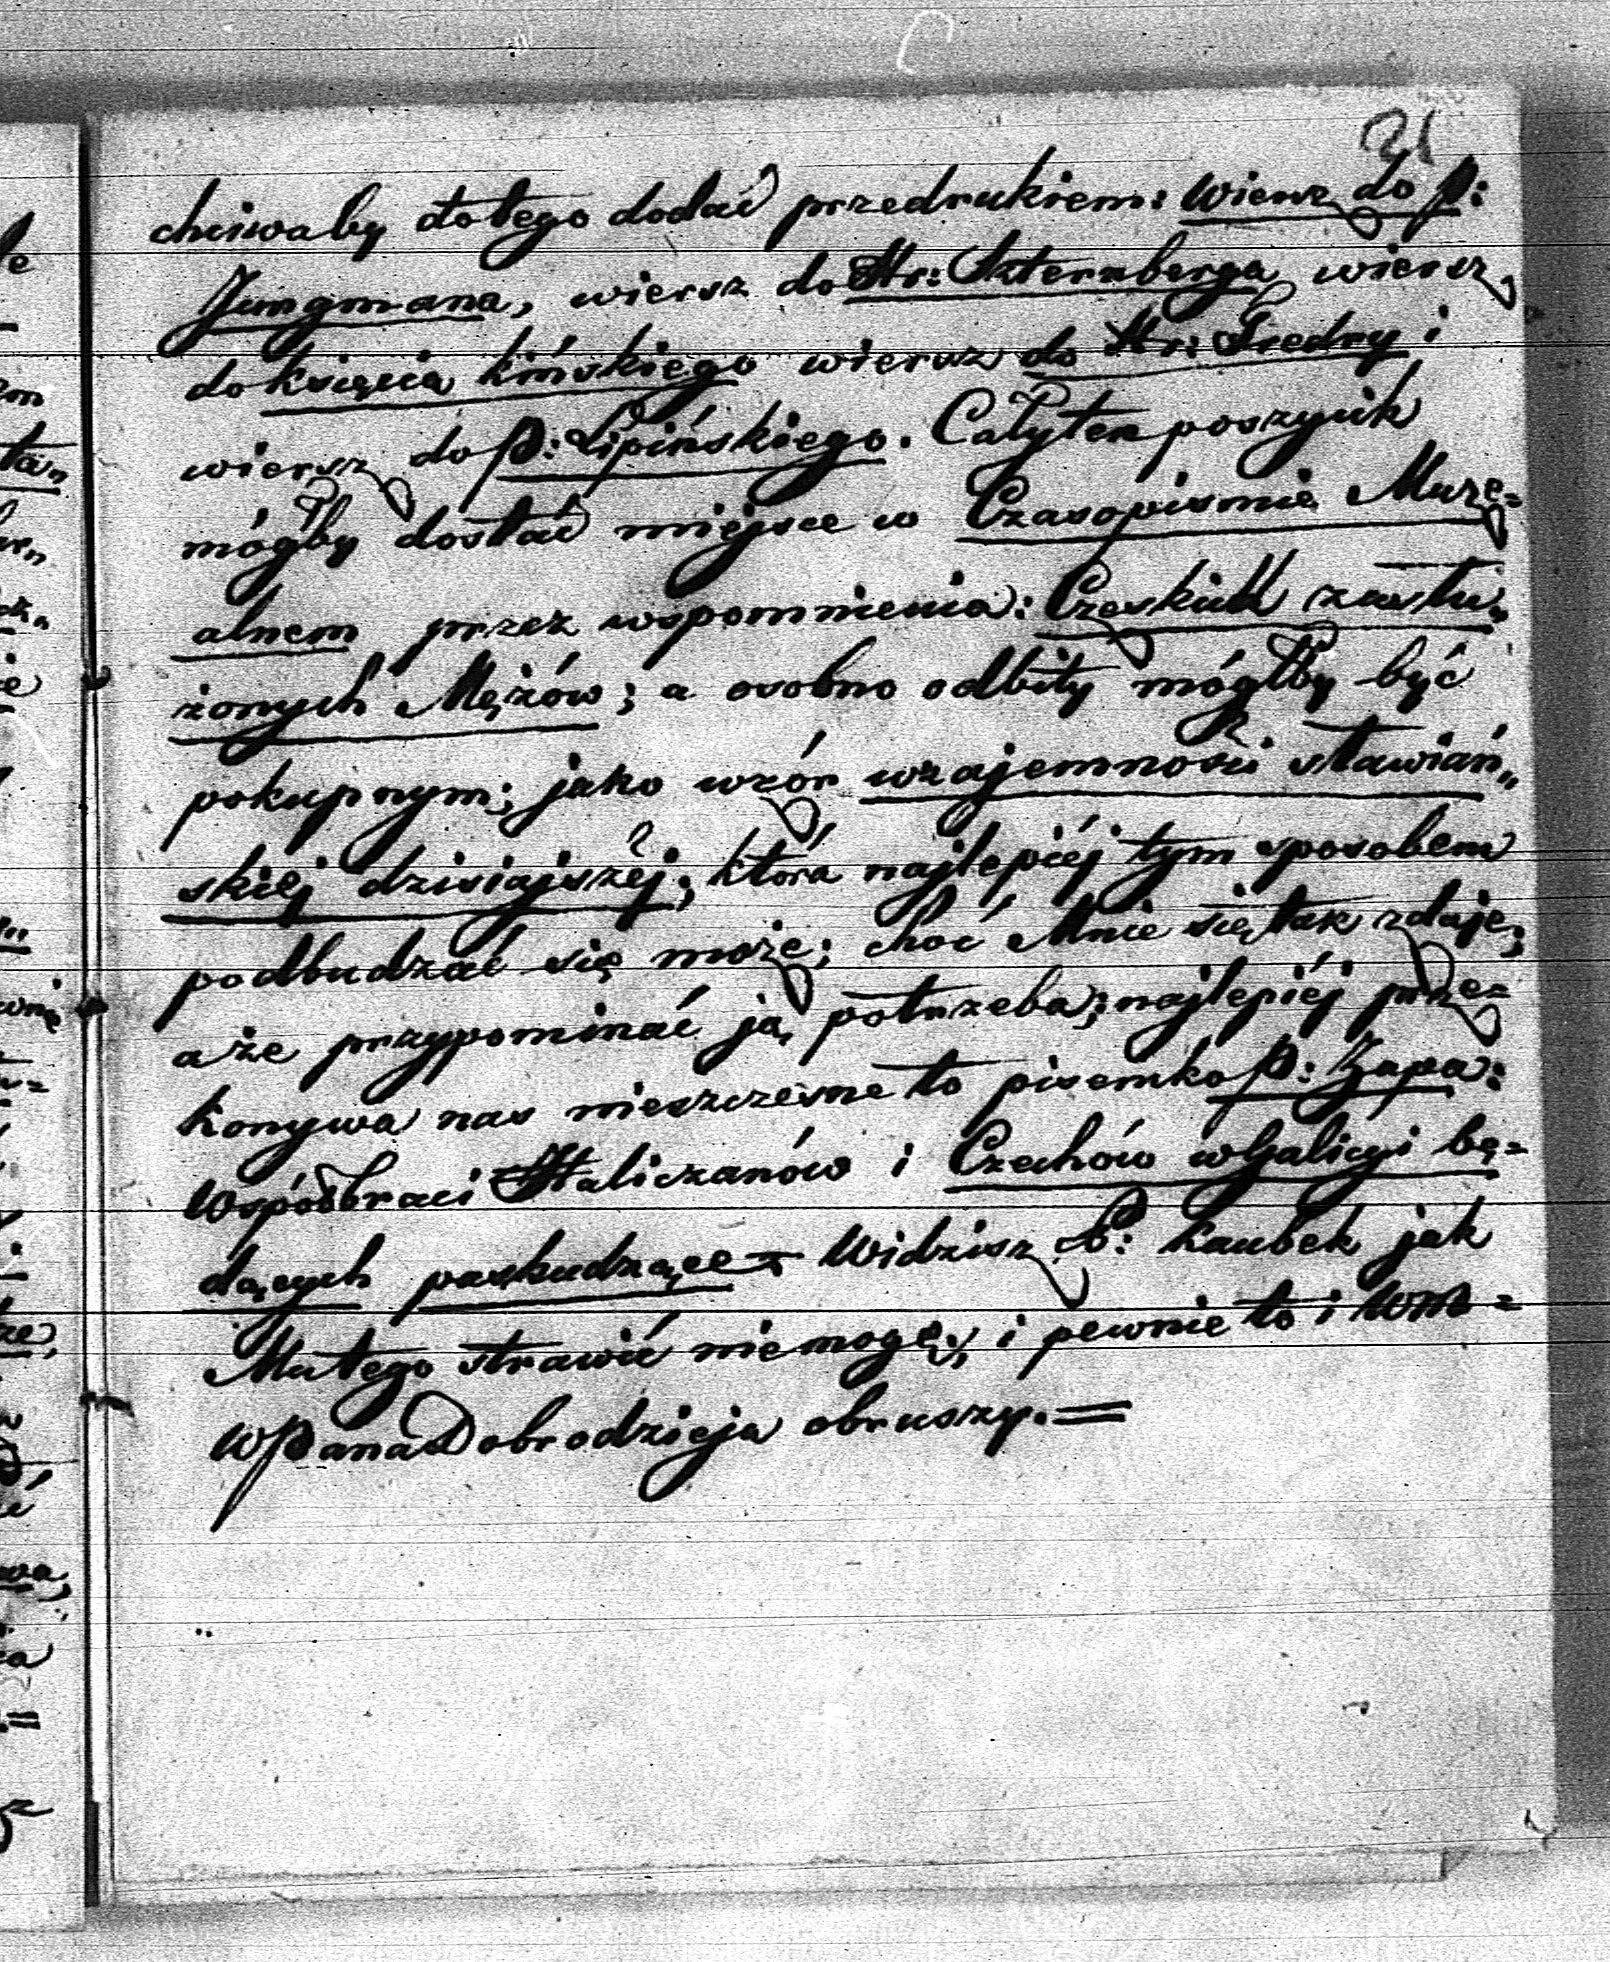 21
chciwaby do tego dodać przedrukiem: wiersz do P:
Jungmana, wiersz do Hr: Szternberga, wiersz
do księcia Kińskiego wiersz do Hr: Średny i
wiersz do P: Lipińskiego. Cały ten poszycik
mógłby dostać miejsce w Czasopismie Muze=
alnem przez wspomnienia: Czeskich zasłu„
żonych Mężów; a osobno odbity mógłby być
pokupnym; jako wzór wzajemności sławiań„
skiej dzisiajszéj; która najlepiéj tym sposobem
podbudzać się może; choć Mnie się tak zdaje;
a że przypominać ją potrzeba; najlepiéj prze=
konywa nas nieszczesne to pisemko P: Zapa:
Współbraci Haliczanów i Czechów w Galicyi bę=
dących paskudzące – Widzisz P: Kaubek jak
Mu tego strawić niemogę; i pewnie to i WM=
WPana Dobrodzieja obruszy. =